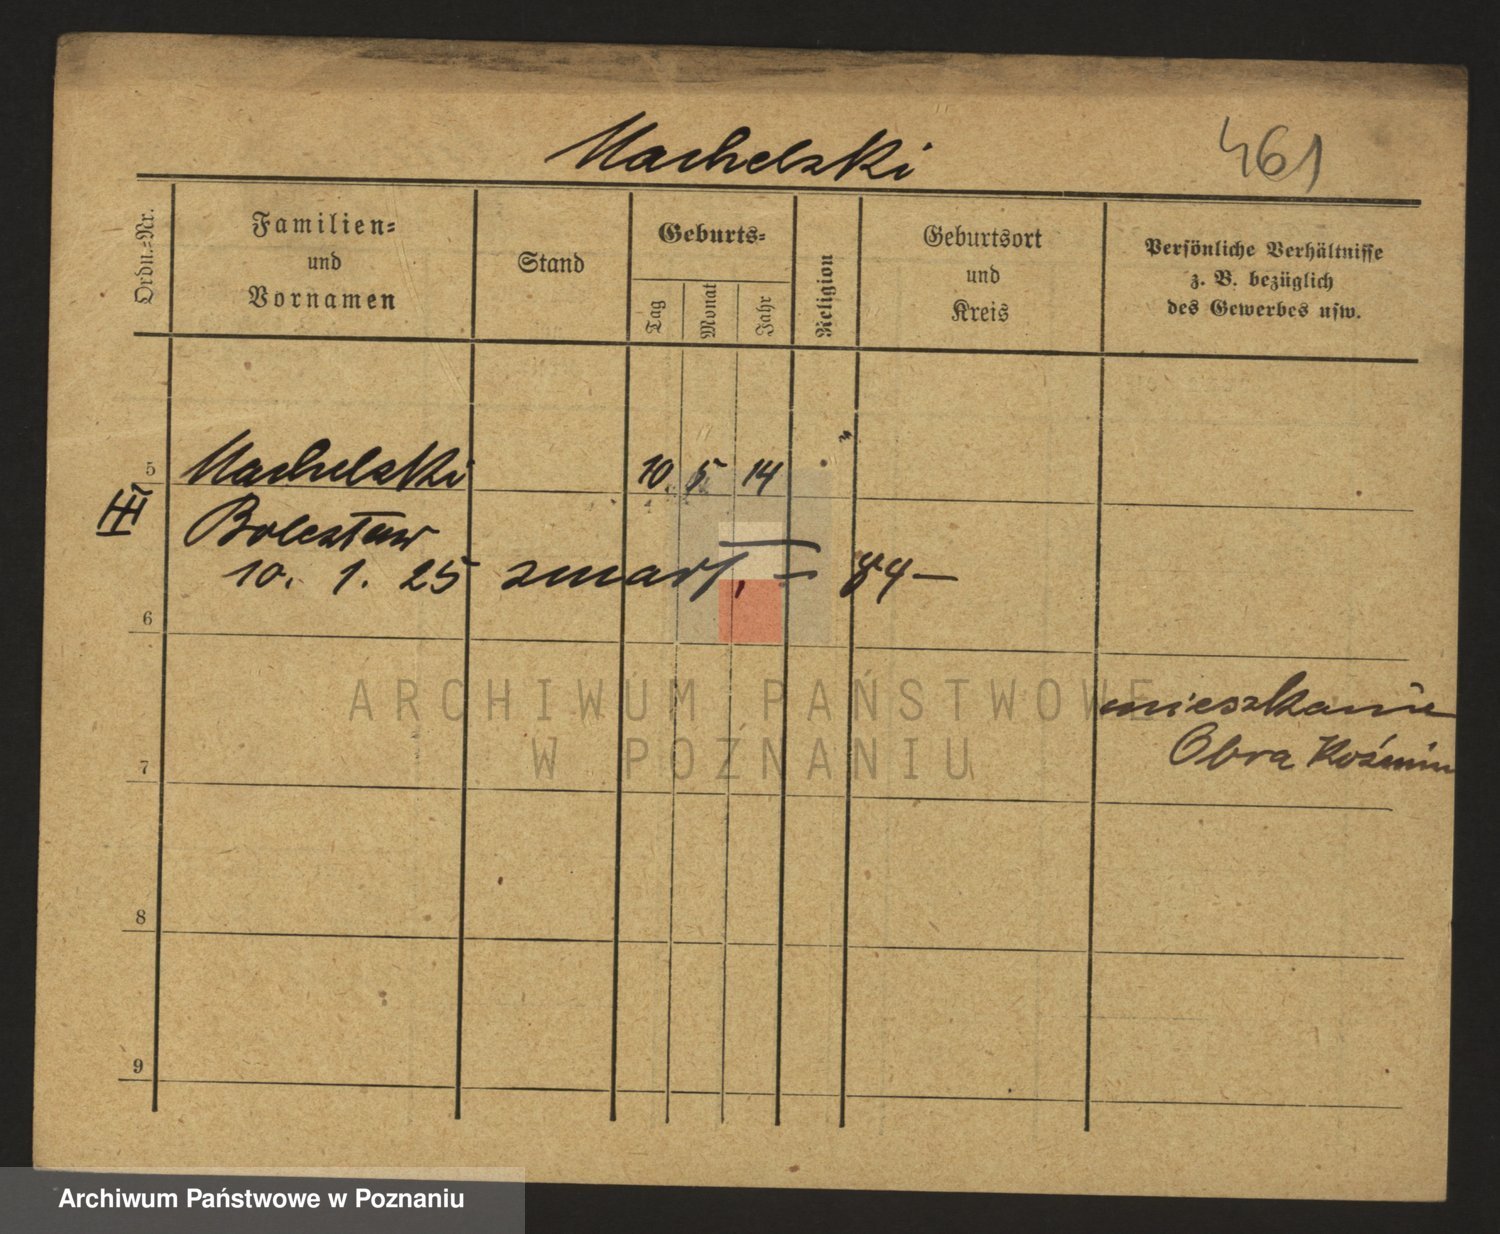 Machelski
461
Ordn.=Nr.
Familien=
und
Vornamen
Stand
Geburts=
Tag
Monat
Jahr
Religion
Geburtsort
und
Kreis
Persönliche Verhältnisse
z. B. bezüglich
des Gewerbes usw.
5
Machelski 10 5 14
III
Bolesław
10. 1. 25 zmarł, 84
6
mieszkanie
Obra Koźmin
7
8
9
ARCHIWUM PAŃSTWOWE
W POZNANIU
Archiwum Państwowe w Poznaniu